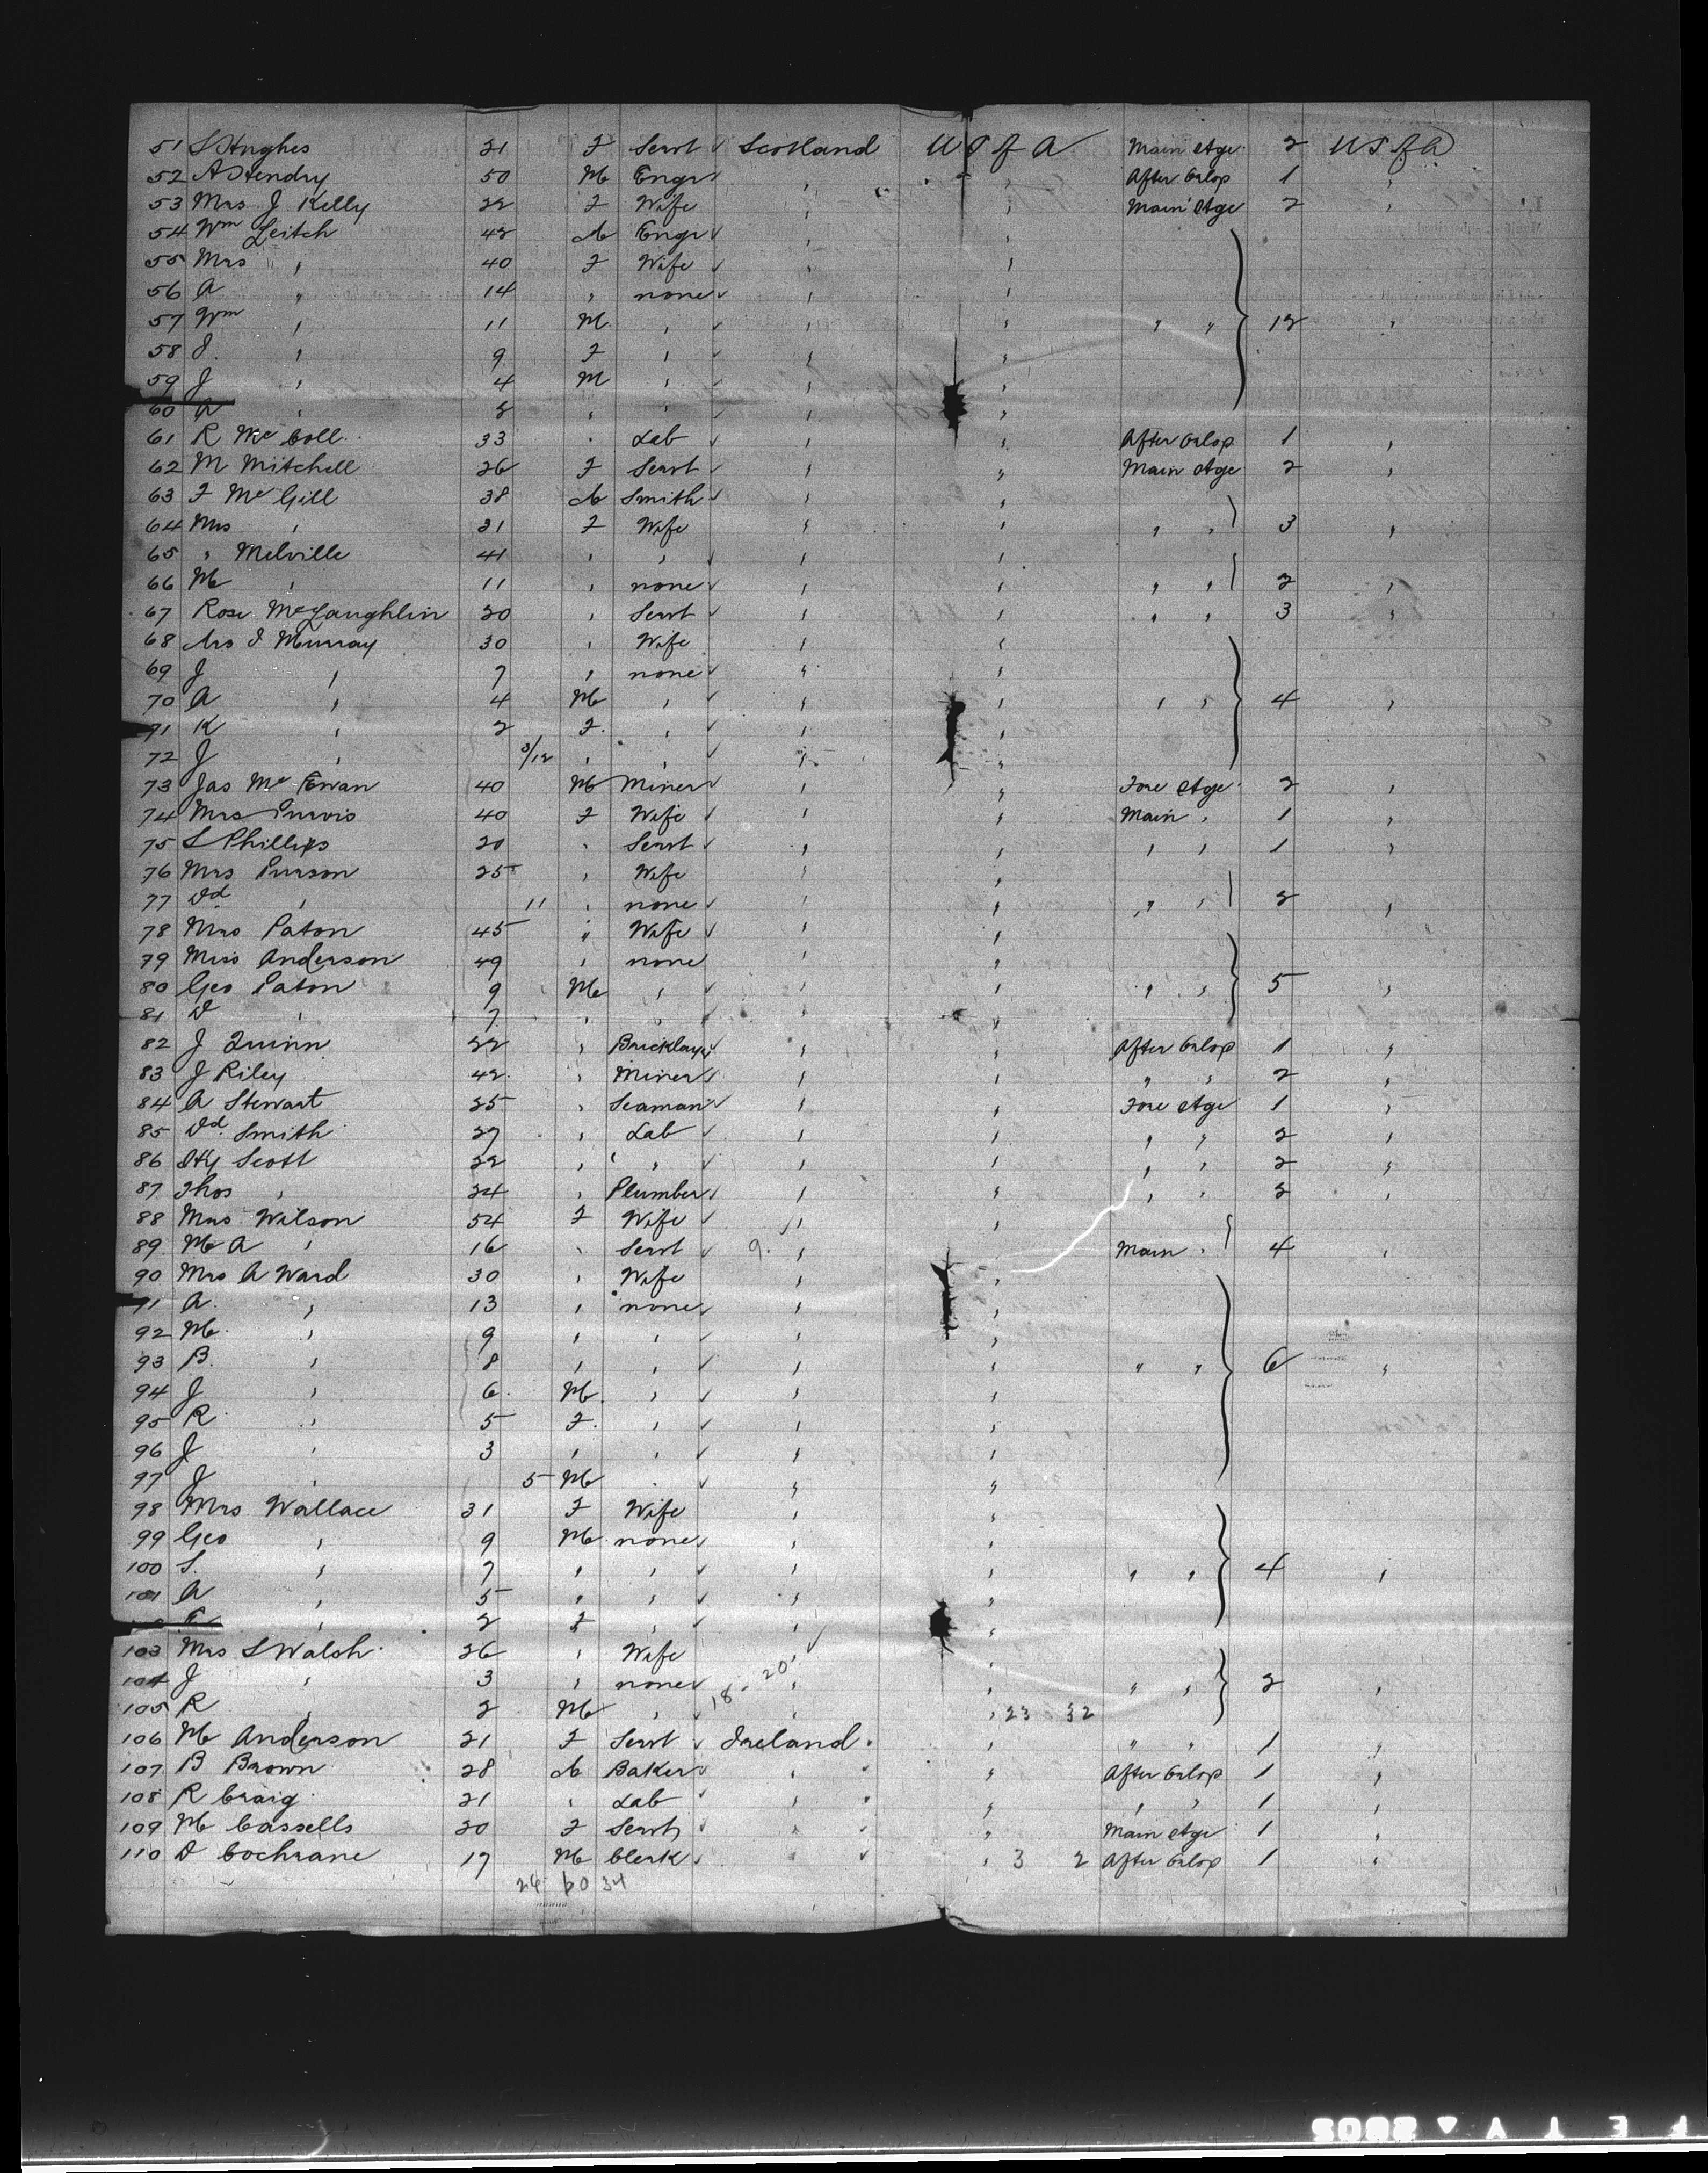 51 S Hughes 21 F Servt Scotland U S of A Main Stge 2 U S of A
52 A Hendry 50 M Engr " " After Orlop 1 "
53 Mrs J Kelly 22 F Wife " " Main Stge 2 "
54 Wm Leitch 42 M Engr " "
55 Mrs " 40 F Wife " "
56 A " 14 " none " "
57 Wm " 11 M " " " " " 12 "
58 J. " 9 F " " "
59 J " 4 M " " "
60 A " 2 " " " "
61 R McColl 33 " Lab " " After Orlop 1 "
62 M Mitchell 26 F Servt " " Main Stge 2 "
63 F McGill 38 M Smith " "
64 Mrs " 21 F Wife " " " " 3 "
65 " Melville 41 " " " "
66 M " 11 " none " " " " 2 "
67 Rose McLaughlin 20 " Servt " " " " 3 "
68 Mrs J Murray 30 " Wife " "
69 J " 7 " none " "
70 A " 4 M " " " " " 4 "
71 K " 2 F. " " "
72 J " 3/12 " " " "
73 Jas McEwan 40 M Miner " " Fore Stge 2 "
74 Mrs Purvis 40 F Wife " " Main " 1 "
75 S Phillips 20 " Servt " " " " 1 "
76 Mrs Purson 25 " Wife " "
77 Dd " 11 " none " " " " 2 "
78 Mrs Paton 45 " Wife " "
79 Miss Anderson 49 " none " "
80 Geo Paton 9 M " " " " " 5 "
81 D " 7 " " " "
82 J Quinn 22 " Bricklayer " " After Orlop 1 "
83 J Riley 42 " Miner " " " " 2 "
84 A Stewart 25 " Seaman " " Fore Stge 1 "
85 Dd Smith 27 " Lab " " " " 2 "
86 Hy Scott 22 " " " " " " 2 "
87 Thos " 24 " Plumber " " " " 2 "
88 Mrs Wilson 54 F Wife " "
89 M A " 16 " Servt 9. " " Main " 4 "
90 Mrs A Ward 30 " Wife " "
91 A. " 13 " none " "
92 M. " 9 " " " "
93 B. " 8 " " " " " " 6 "
94 J " 6 M. " " "
95 R " 5 F. " " "
96 J " 3 " " " "
97 J " 5 M " " "
98 Mrs Wallace 31 F Wife " "
99 Geo " 9 M none " "
100 S. " 7 " " " " " " 4 "
101 A " 5 " " " "
" 2 F " " "
103 Mrs S Walsh 26 " Wife " "
104 J " 3 " none 18 - 20 " " " " 2 "
105 R " 2 M " " " 23 32
106 M Anderson 21 F Servt Ireland " " " 1 "
107 B Brown 28 M Baker " " After Orlop 1 "
108 R Craig 21 " Lab " " " " 1 "
109 M Cassells 20 F Servt " " Main Stge 1 "
110 D Cochrane 17 M Clerk " " 3 2 After Orlop 1 "
26 60 34